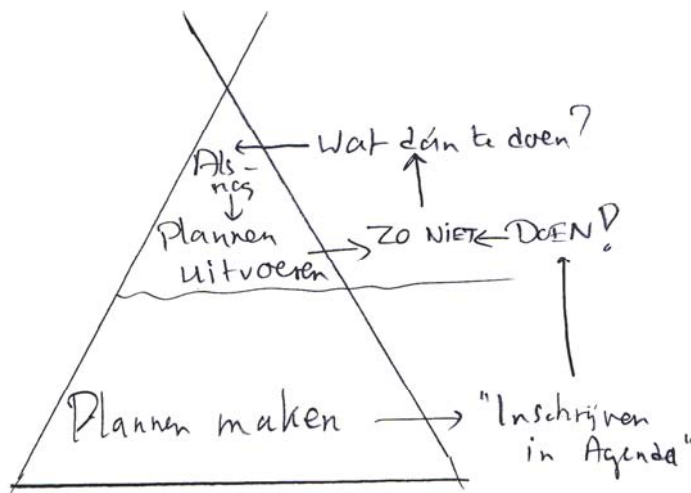 Wat dán te doen?
Als-
nog
Plannen
uitvoeren
ZO NIET
DOEN!
Plannen maken
"Inschrijven
in Agenda"